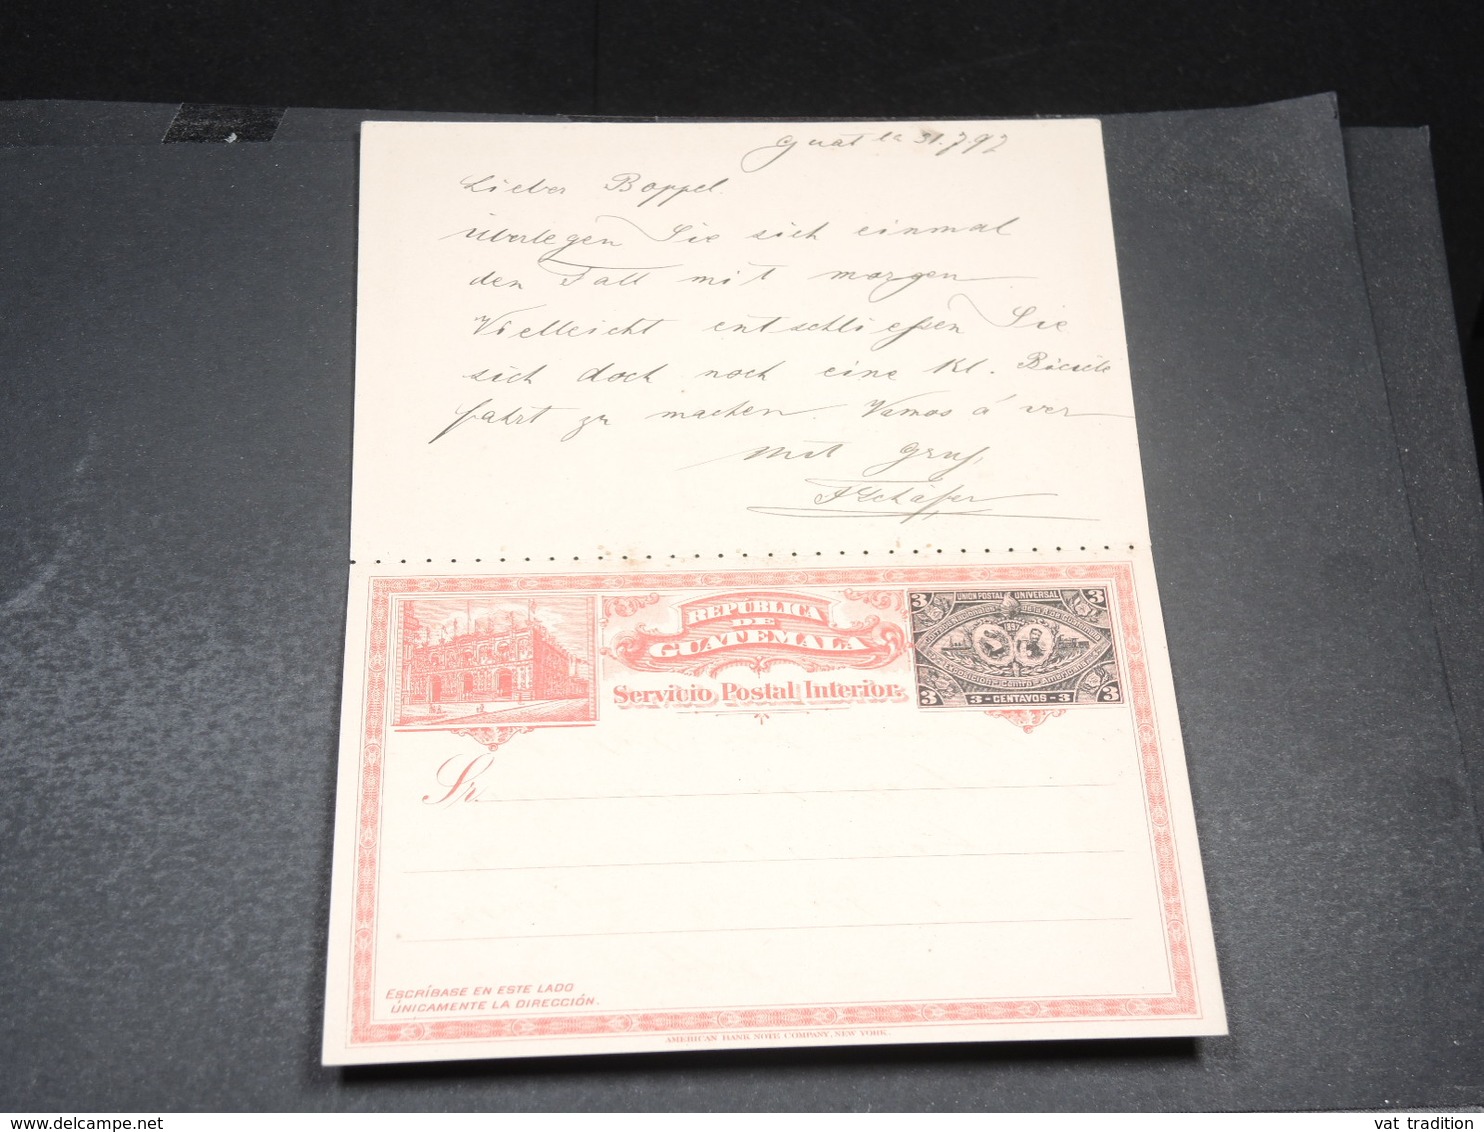 Guat 31.7.97
Lieber Boppel.
Überlegen Sie sich einmal
den Fall mit morgen
Vielleicht entschliessen Sie
sich doch noch eine kl. Bicicle
fahrt zu machen. Vamos á ver
Mit Gruss
Schäfer
REPÚBLICA
DE
GUATEMALA
Servicio Postal Interior.
3 UNION POSTAL UNIVERSAL 3
1897
EXPOSICION Centro-Americana
3 3-CENTAVOS-3 3
Sr.
ESCRÍBASE EN ESTE LADO
ÚNICAMENTE LA DIRECCIÓN.
AMERICAN BANK NOTE COMPANY, NEW YORK.
vat tradition